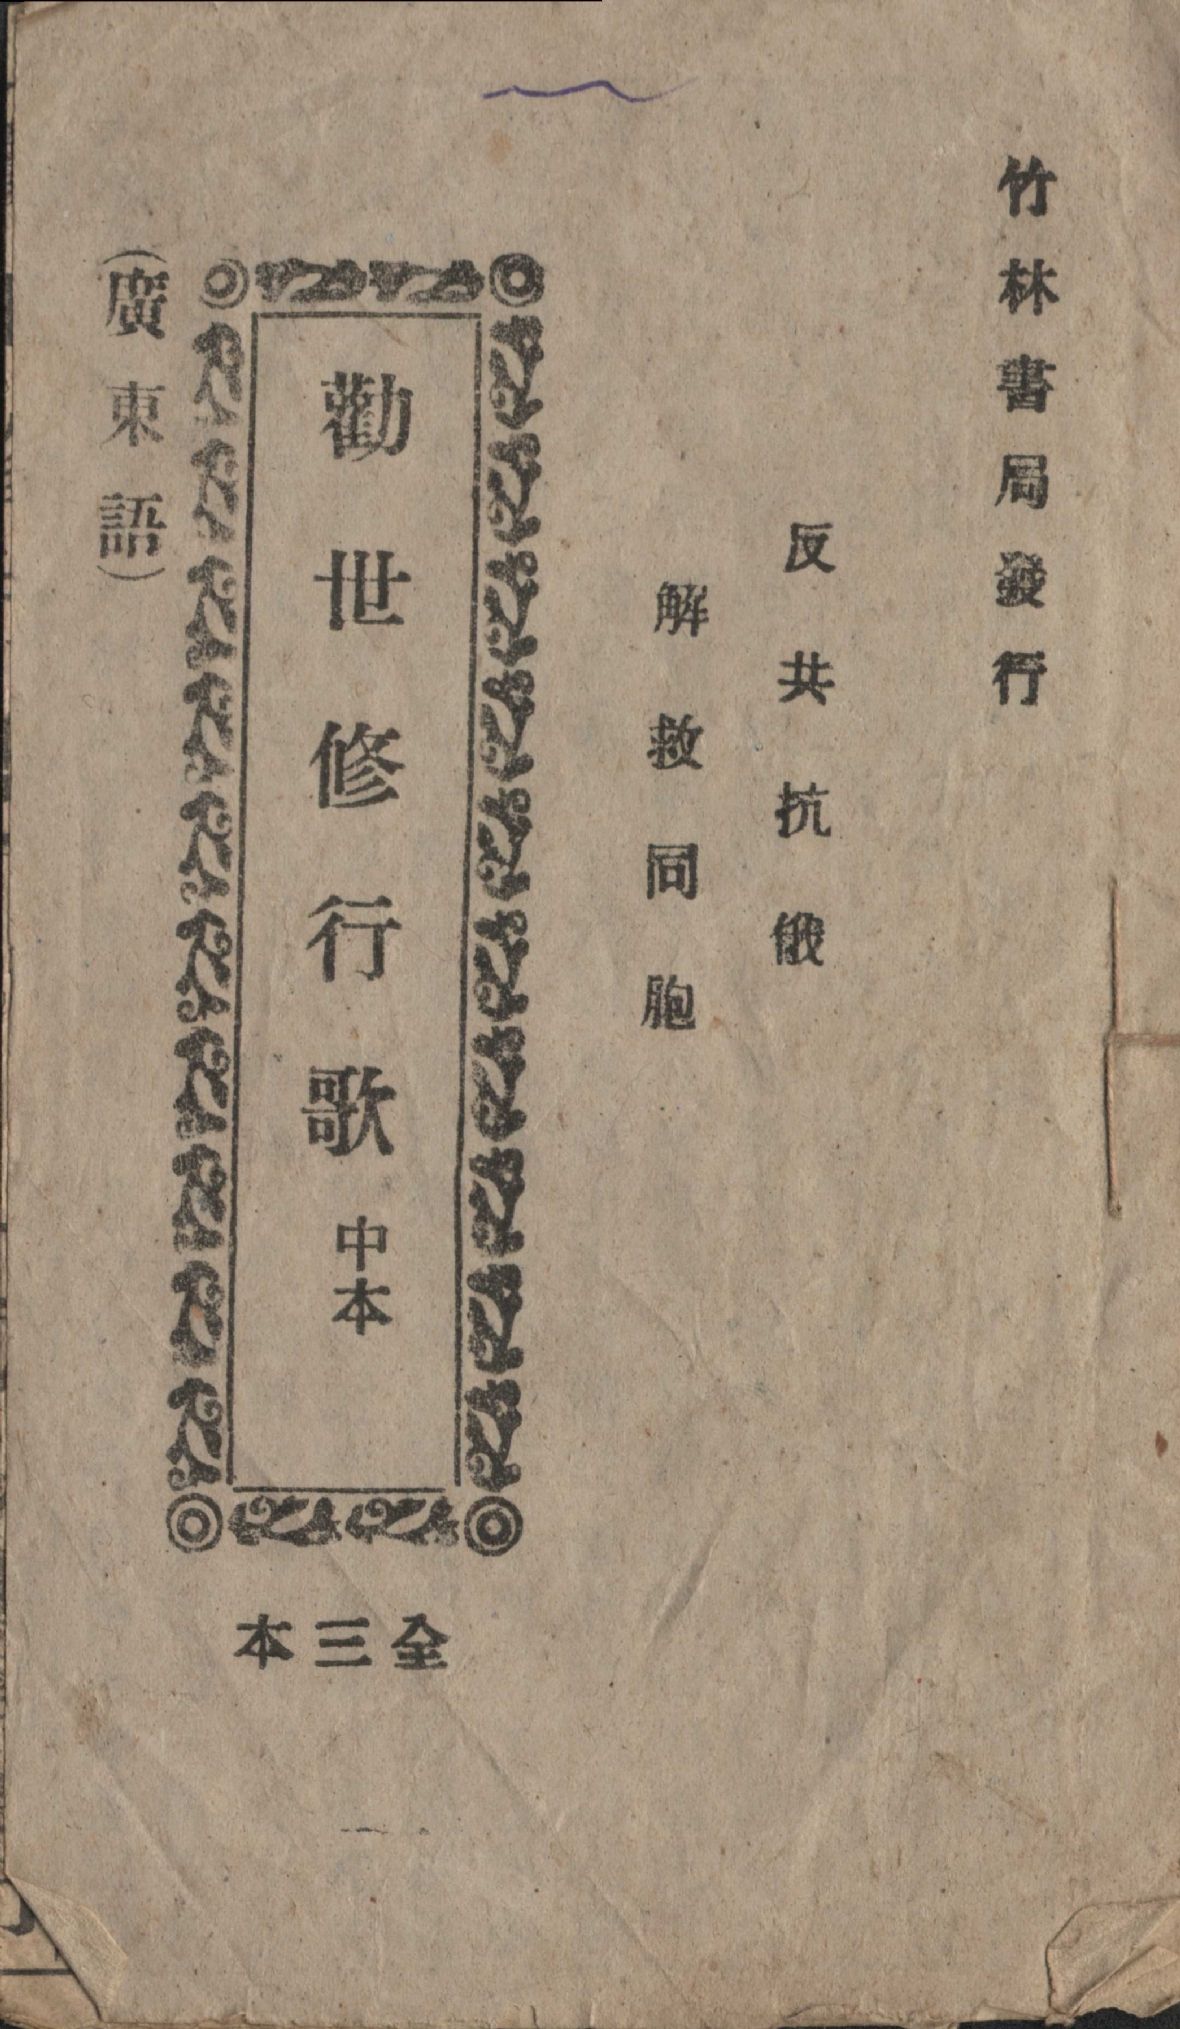 竹林書局發行
反共抗俄
解救同胞
勸世修行歌 中本
全三本
(廣東語)